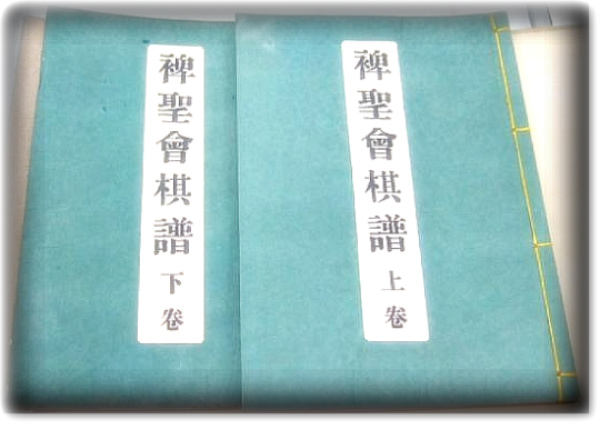 裨聖會棋譜 上卷
裨聖會棋譜 下卷